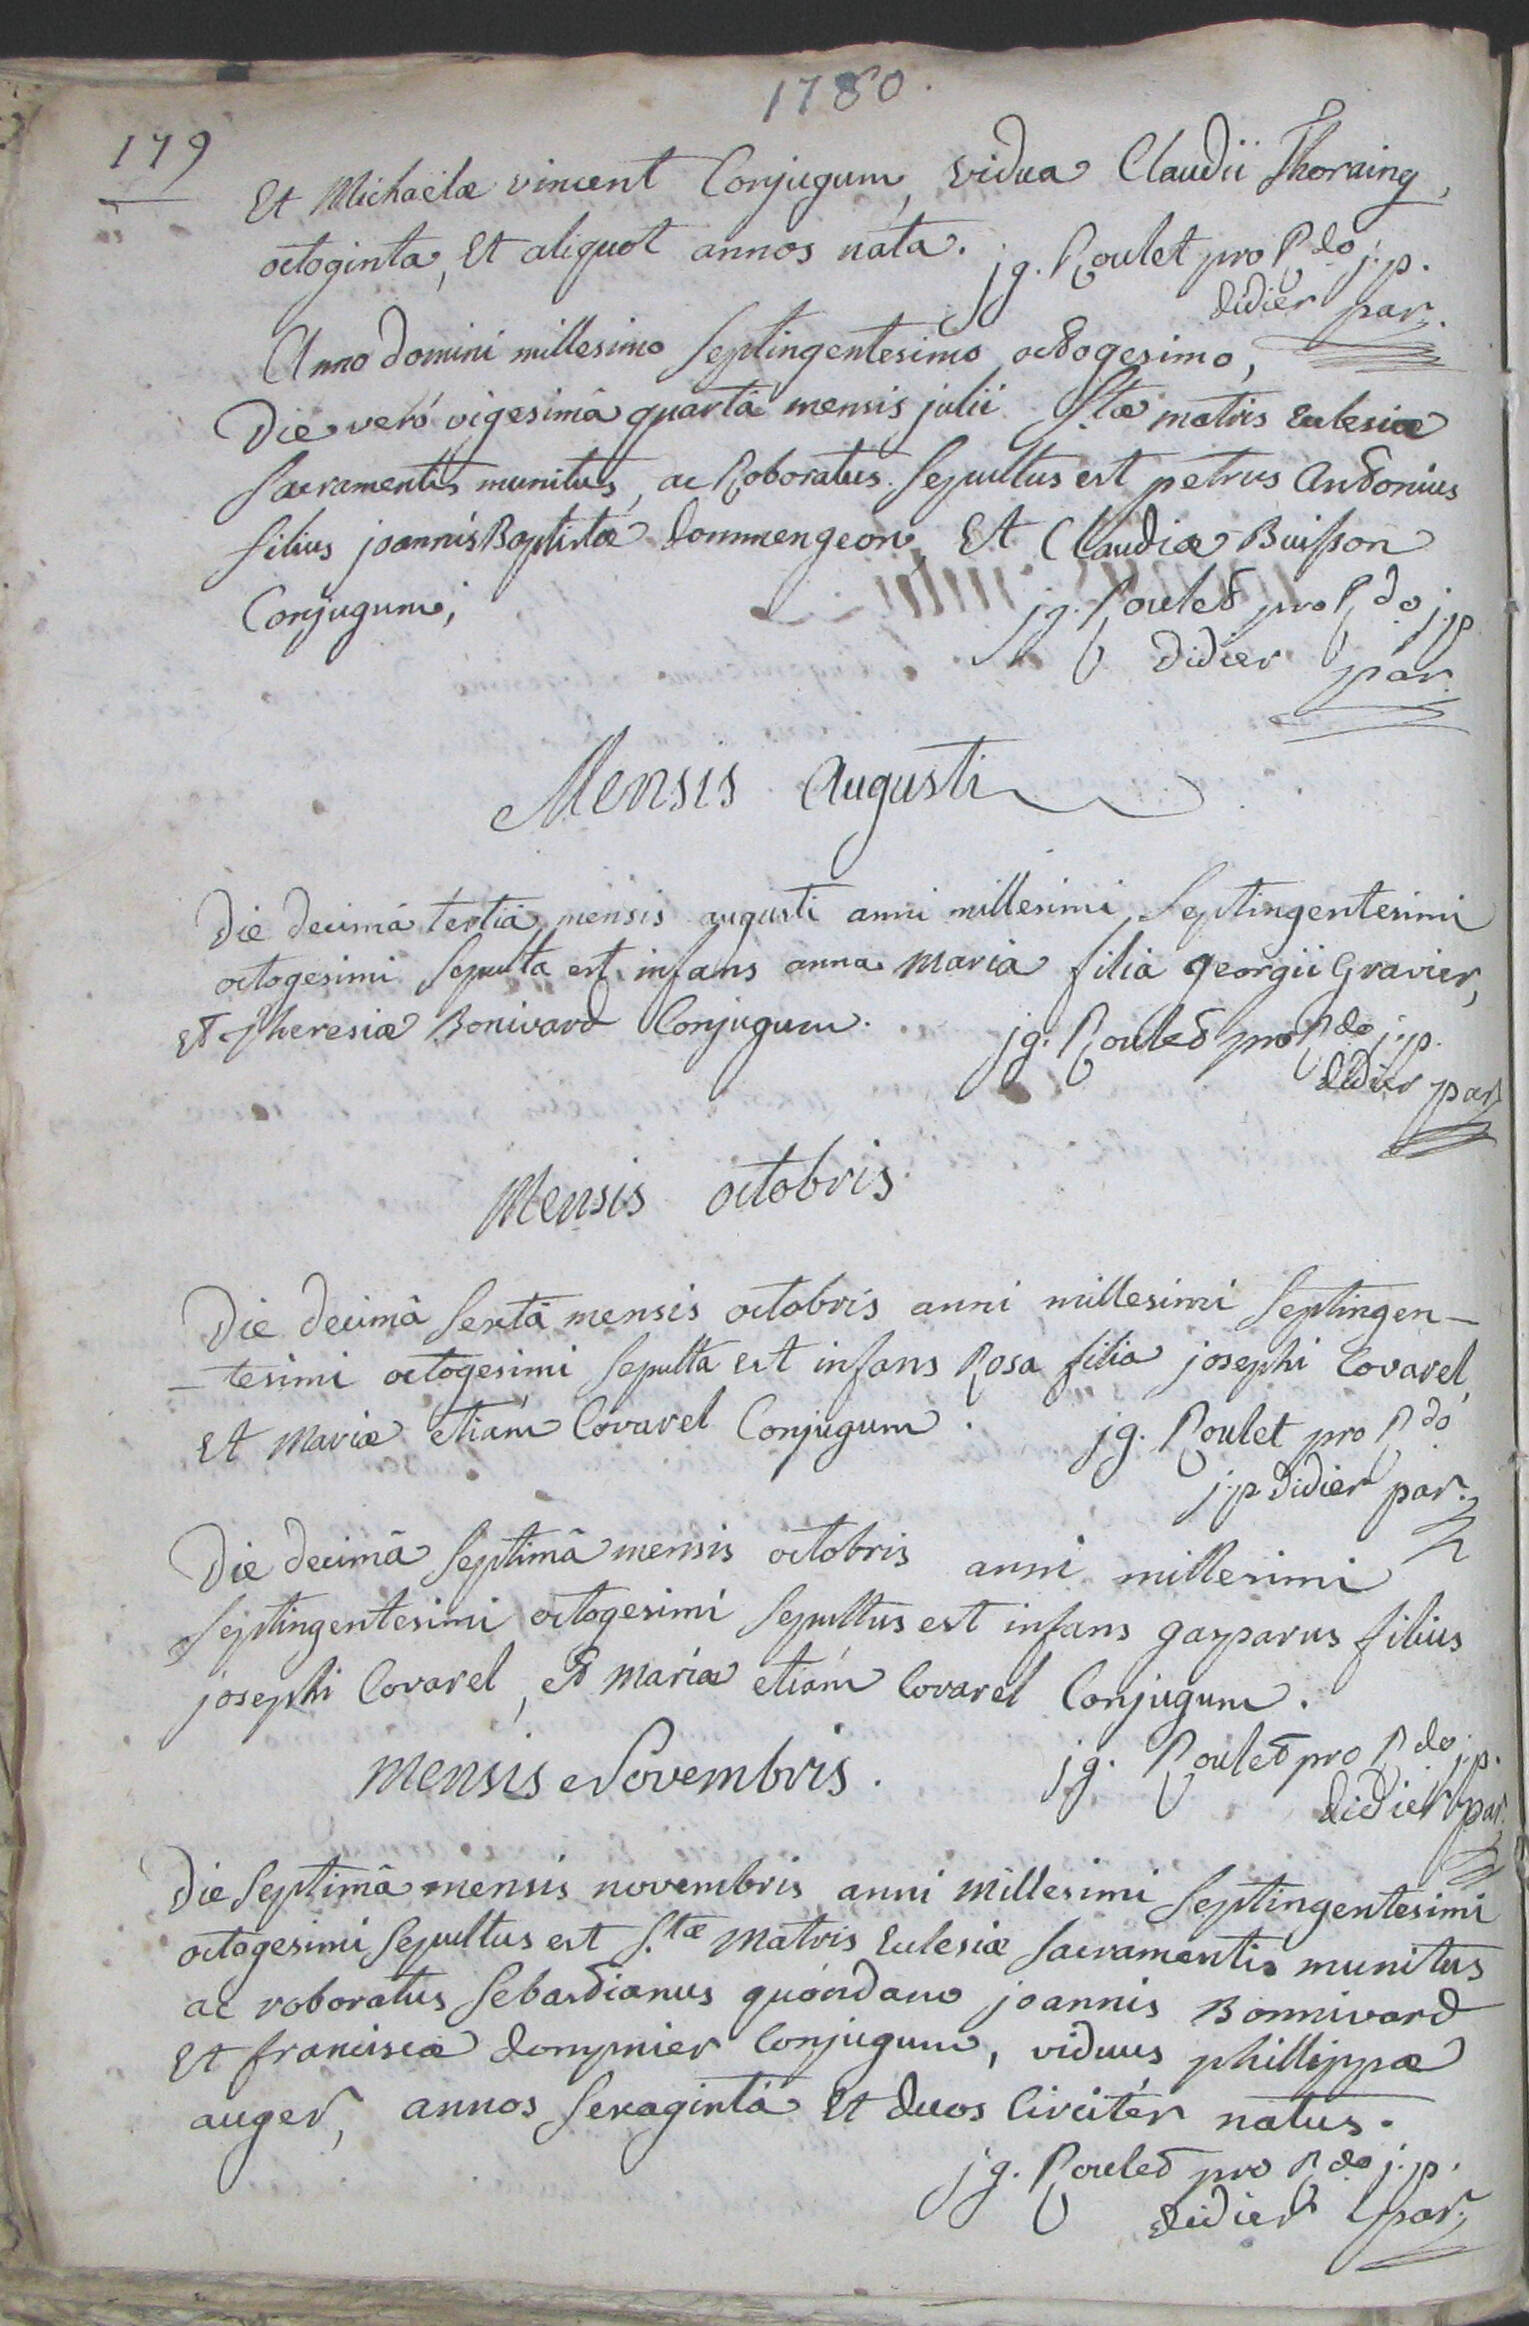 1780.
179
Et Michaëlæ vincent Conjugum, vidua Claudii Thoraing,
octoginta, Et aliquot annos nata. jg. Roulet pro Rdo j.p.
didier par.
Anno domini millesimo Septingentesimo octogesimo,
Die veró vigesimâ quartâ mensis julii Stæ matris Eclesiæ
Sacramentis munitus, ac Roboratus. Sepultus est petrus Antonius
filius joannis Baptistæ dommengeon, Et Claudiæ Buisson
Conjugum; jg. Roulet pro Rdo j.p
Didier par.
Mensis Augusti
Die decimâ tertiâ mensis augusti anni millesimi Septingentesimi
octogesimi Sepulta est infans anna Maria filia georgii Gravier,
Et Theresiæ Bonivard Conjugum. jg. Roulet pro Rdo j.p.
didier par
Mensis octobris
Die decimâ Sextâ mensis octobris anni millesimi Septingen-
-tesimi octogesimi Sepulta Est infans Rosa filia josephi Covarel,
Et Mariæ etiám Covarel Conjugum. jg. Roulet pro Rdo
j.p didier par.
Die decimâ Septimâ mensis octobris anni millesimi
Septingentesimi octogesimi Sepultus est infans gasparus filius
josephi Covarel, et Mariæ etiám Covarel Conjugum.
Mensis Novembris. jg. Roulet pro Rdo j.p.
didier par.
Die Septimâ mensis novembris anni Millesimi Septingentesimi
octogesimi Sepultus est S.tæ Matris Eclesiæ Sacramentis munitus
ac roboratus Sebastianus quóndam joannis Bonnivard
Et franciscæ dompnier Conjugum, viduus phillippæ
auger, annos Sexagintâ Et duos Circitér natus.
jg. Roulet pro Rdo j.p.
didier par.